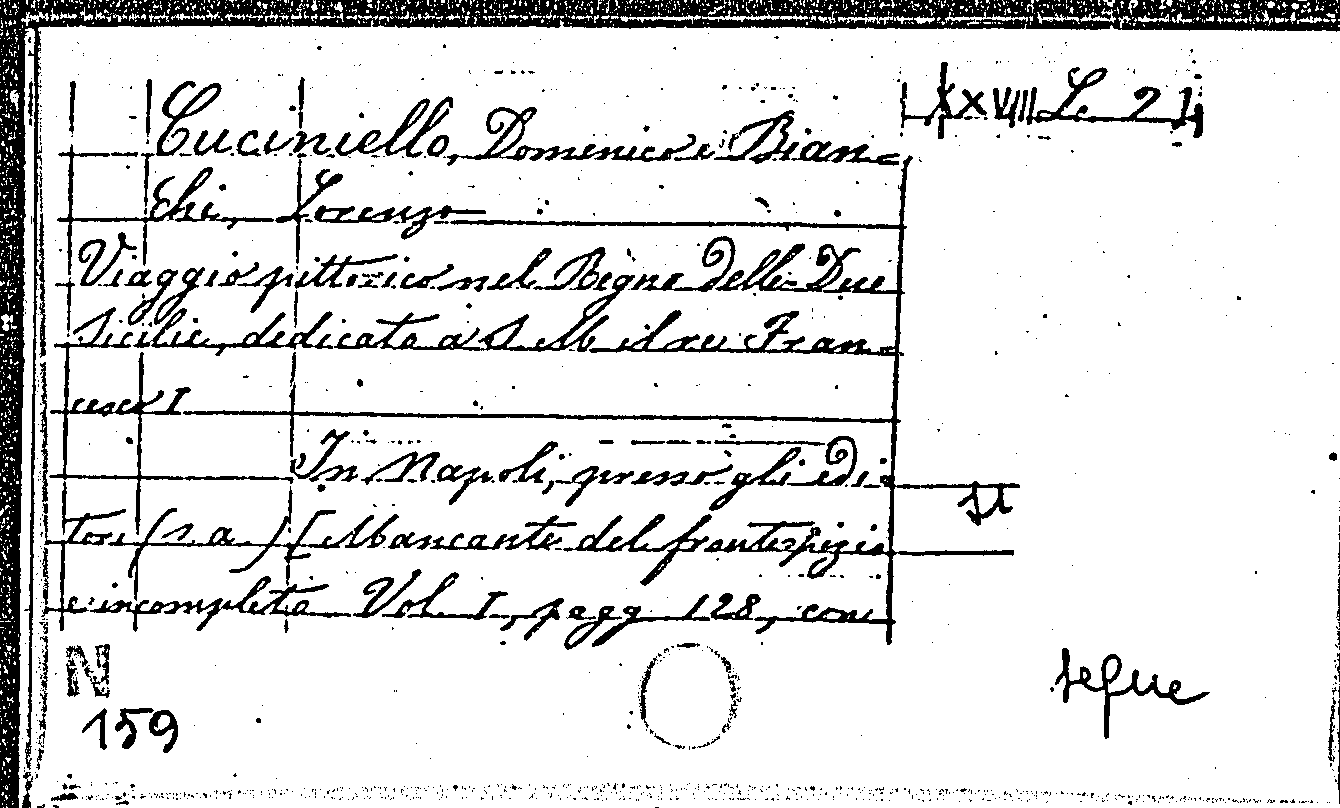 XXVIII Le 21
Cuciniello, Domenico e Bian=
chi, Lorenzo
Viaggio pittorico nel Regno delle Due
Sicilie, dedicato a S. M. il re Fran=
cesco I
In Napoli, presso gli edi=
tori (s. a.) [Mancante del frontespizio
e incompleta Vol. I, pagg. 128, con
N
159
segue